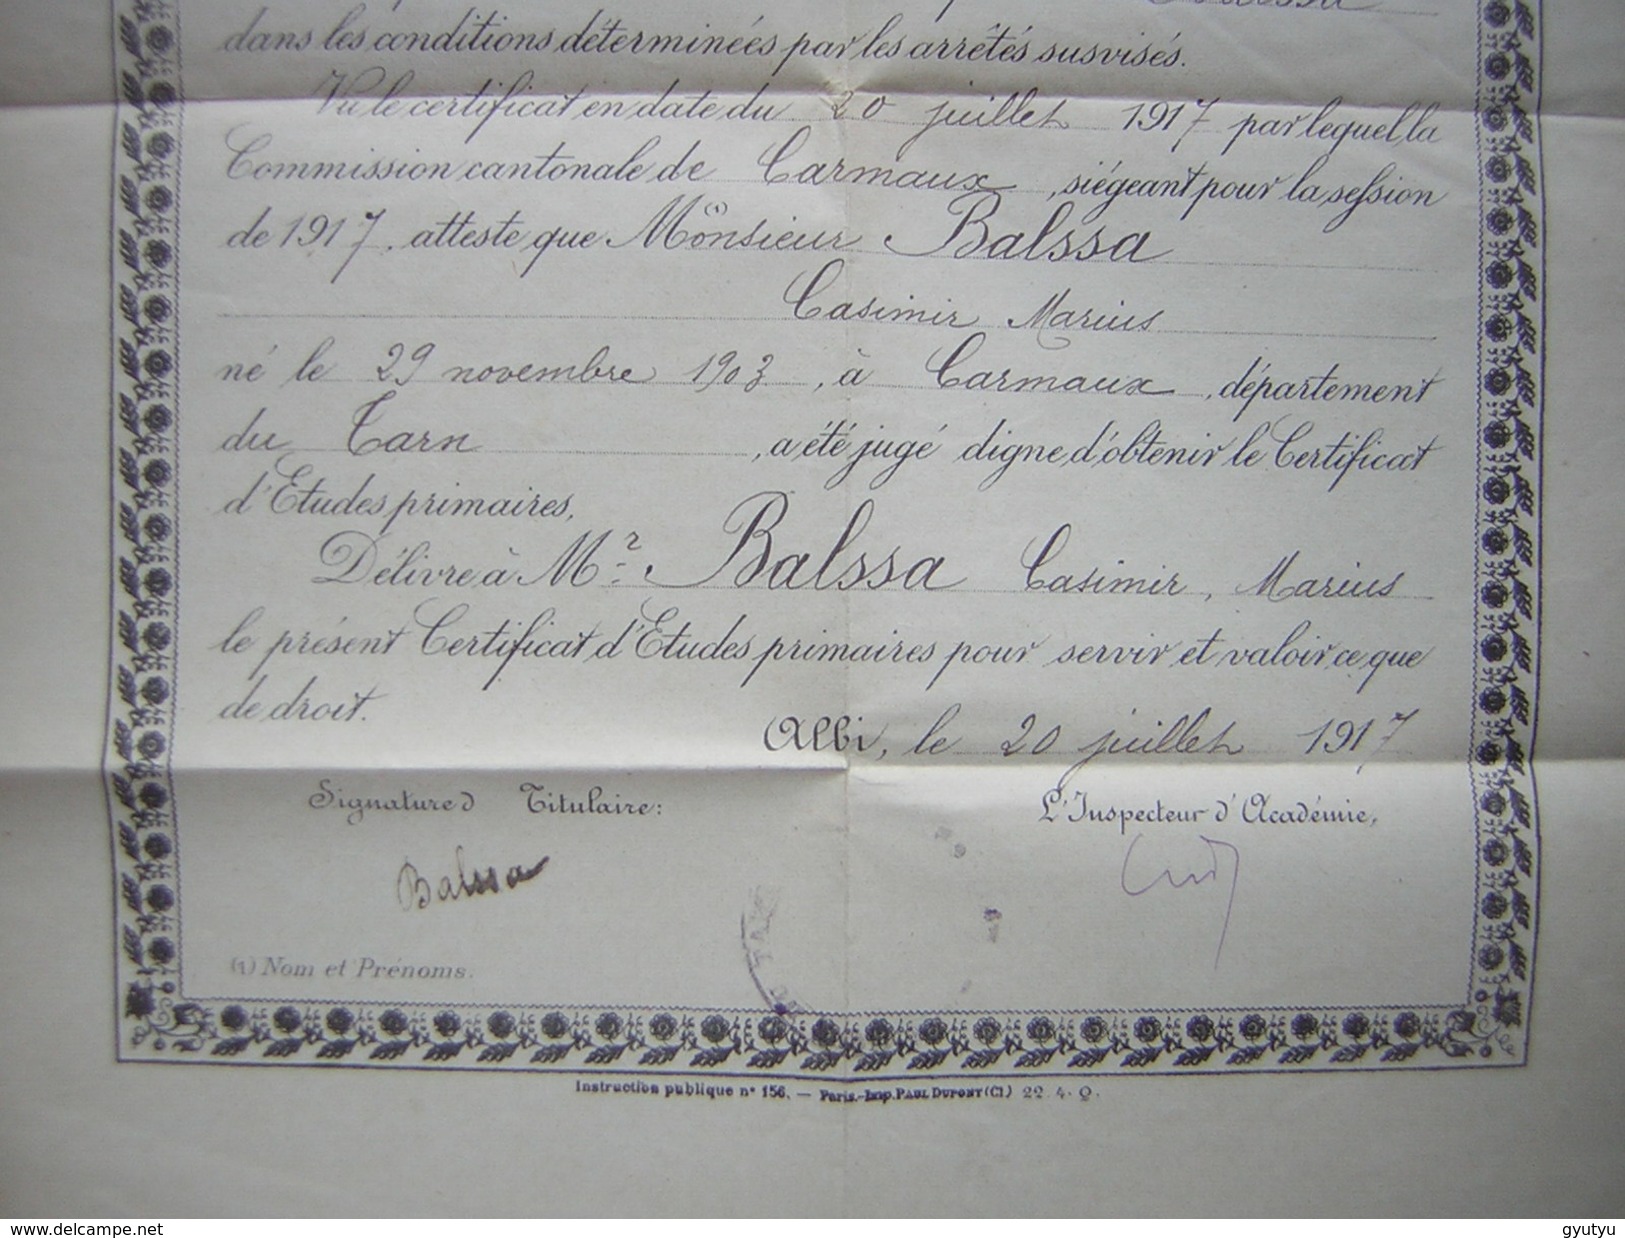 dans les conditions déterminées par les arrêtés susvisés.
Vu le certificat en date du 20 juillet 1917 par lequel la
Commission cantonale de Carmaux, siégeant pour la session
de 1917, atteste que (1) Monsieur Balssa
Casimir Marius
né le 29 novembre 1903, à Carmaux, département
du Tarn, a été jugé digne d'obtenir le Certificat
d'Etudes primaires,
Délivre à Mr Balssa Casimir, Marius
le présent Certificat d'Etudes primaires pour servir et valoir ce que
de droit.
Albi, le 20 juillet 1917
Signature d Titulaire:
L'Inspecteur d'Académie,
Balssa
(1) Nom et Prénoms.
Instruction publique n° 156. — Paris.-Imp. PAUL DUPONT (Cl.) 22.4.
www.delcampe.net
gyutyu